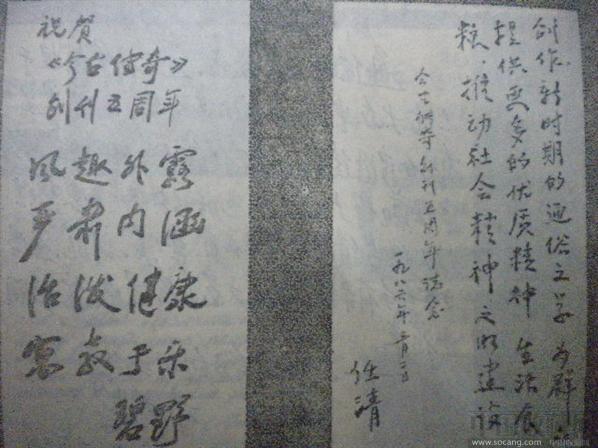 祝贺
《今古传奇》
创刊五周年
风趣外露
严肃内涵
活泼健康
寓教于乐
碧野
创作新时期的通俗文学 为群众
提供更多的优质精神 生活食
粮，推动社会精神文明建设
今古传奇创刊五周年志念
一九八六年
任清
www.socang.com